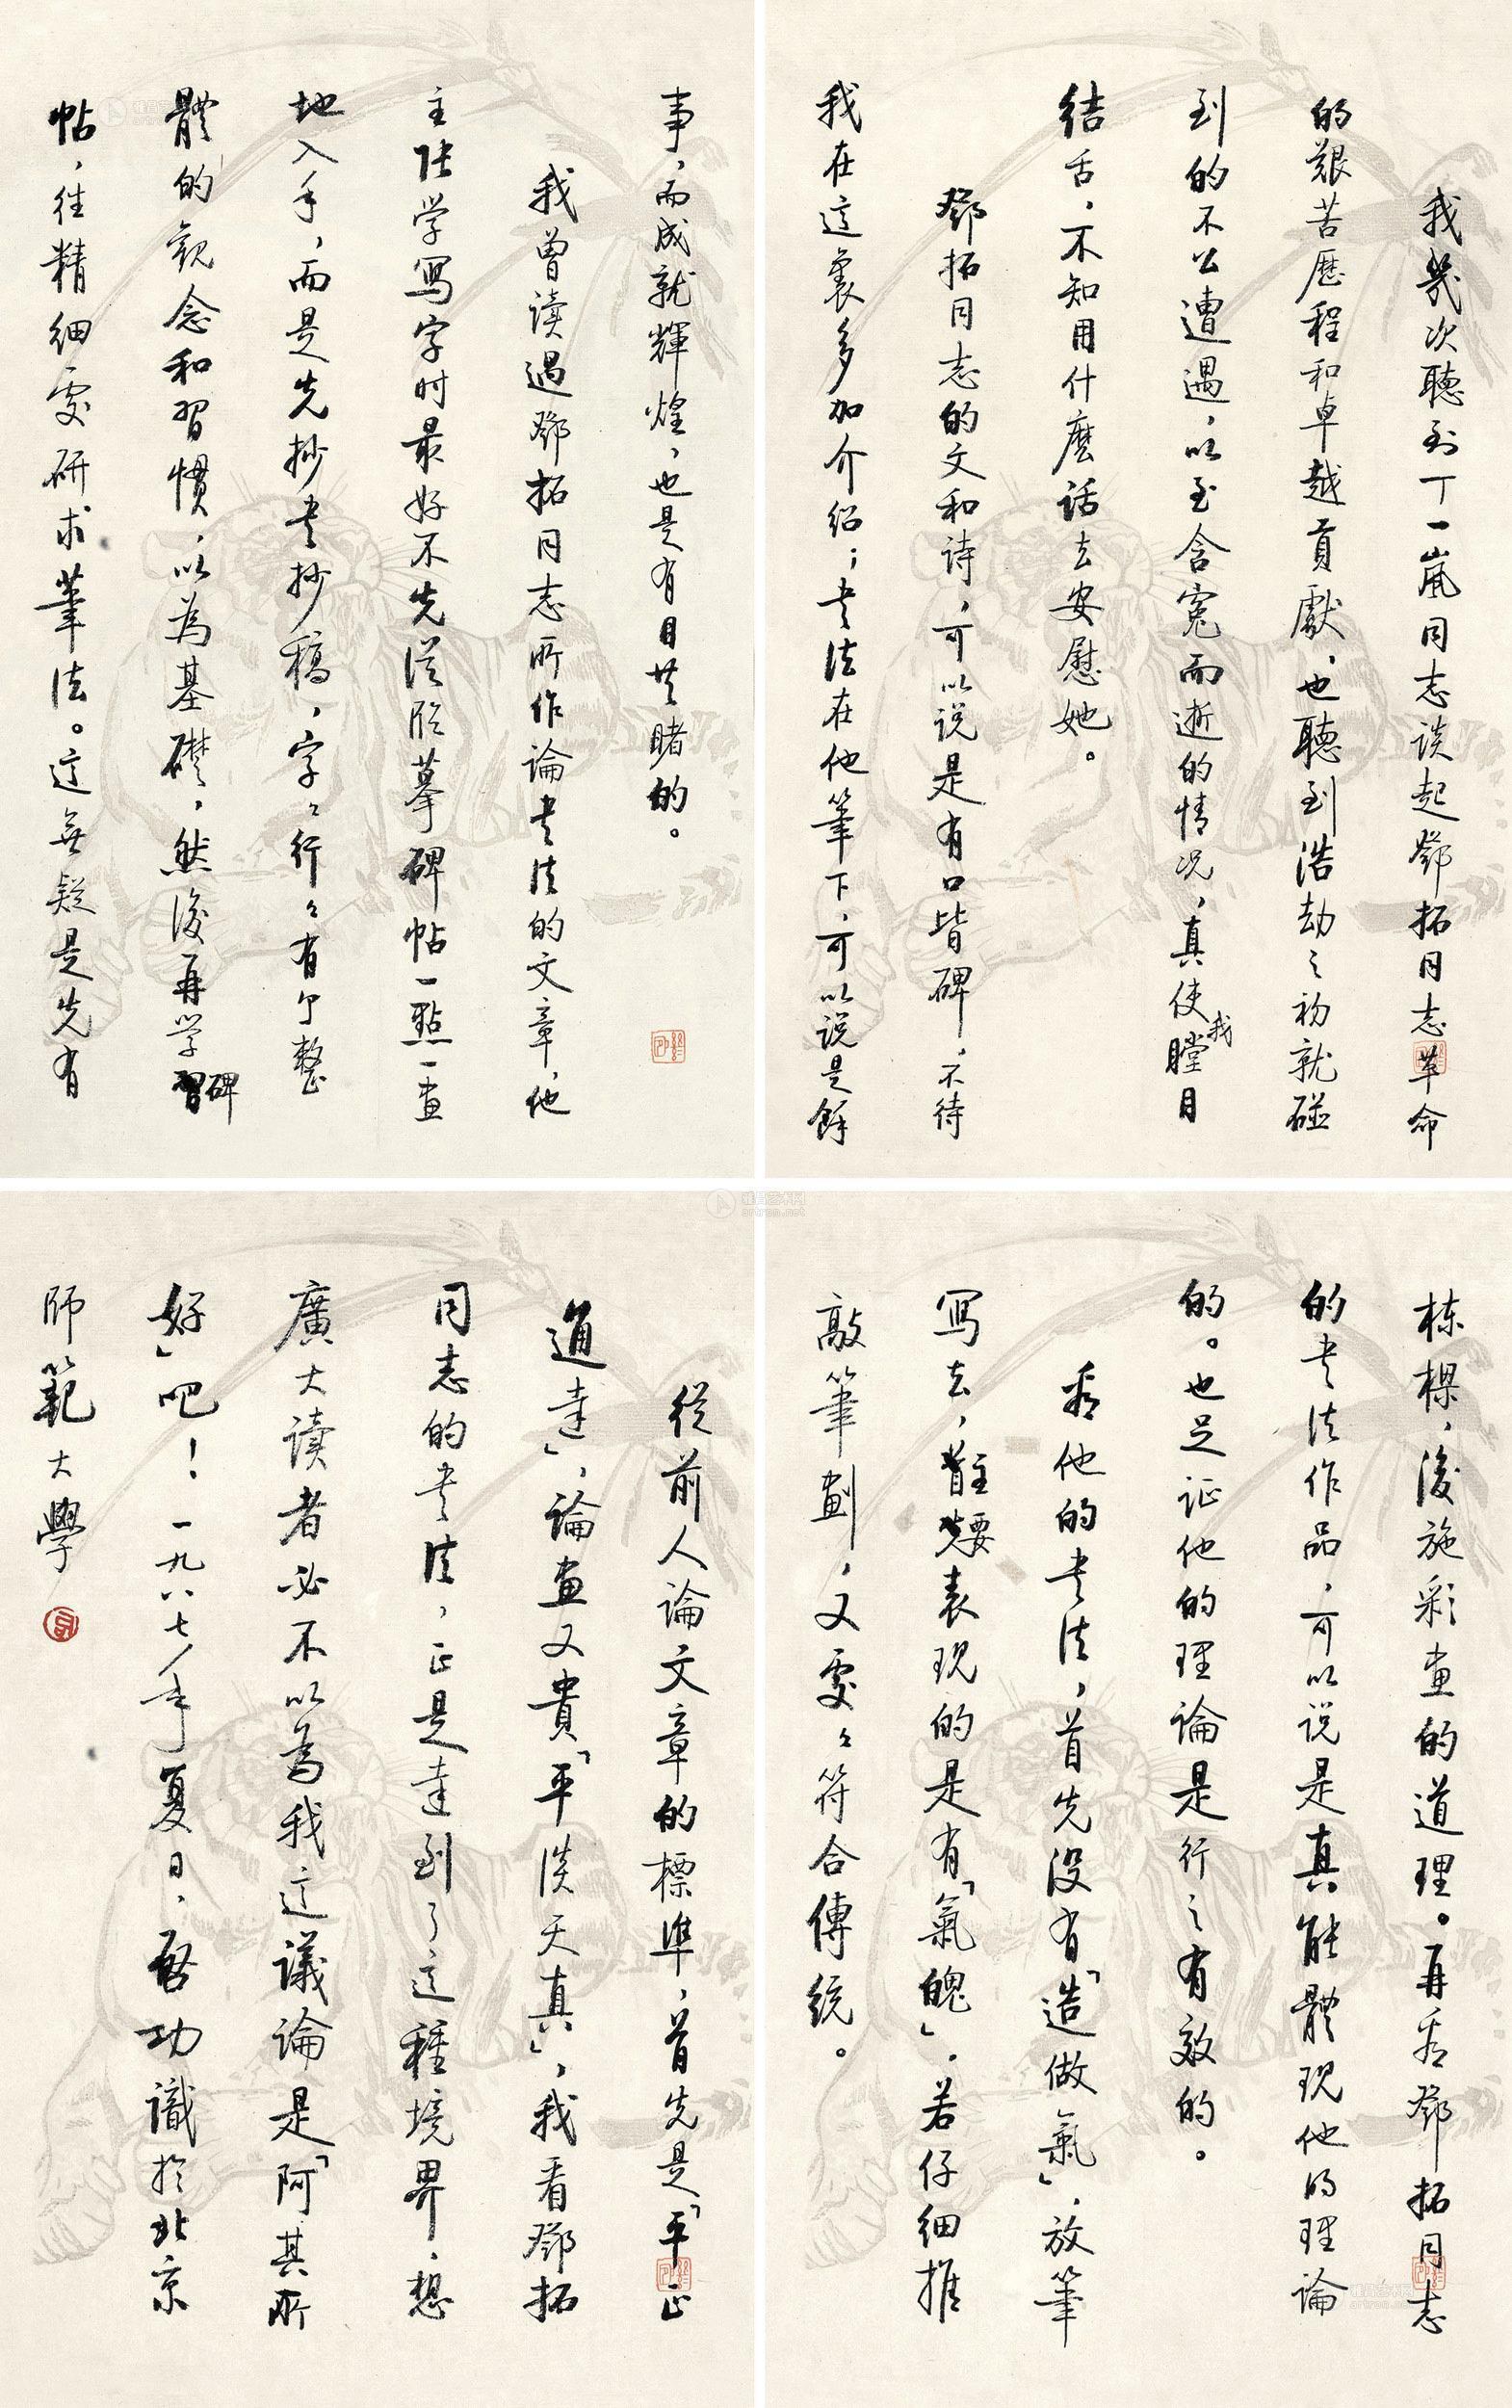 我幾次聽到丁一嵐同志談起鄧拓同志革命
的艱苦歷程和卓越貢獻，也聽到浩劫之初就碰
到的不公遭遇，以至含寃而逝的情況，真使我瞠目
結舌，不知用什麽話去安慰她。
鄧拓同志的文和詩，可以说是有口皆碑，不待
我在這裏多加介紹；书法在他筆下，可以说是餘
事，而成就輝煌，也是有目共睹的。
我曾读過鄧拓同志所作論书法的文章，他
主张学写字时最好不先從临摹碑帖一點一畫
地入手，而是先抄书抄稿，字〻行〻有了整
體的观念和習慣，以為基礎，然後再学習碑
帖，往精細處研求筆法。這無疑是先有
栋樑，後施彩畫的道理。再看鄧拓同志
的书法作品，可以说是真能體現他的理論
的。也足证他的理論是行之有效的。
看他的书法，首先没有「造做氣」，放筆
写去，主要表現的是有「氣魄」。若仔細推
敲筆劃，又處〻符合傳統。
從前人論文章的標準，首先是「平正
通達」，論畫又貴「平淡天真」，我看鄧拓
同志的书法，正是達到了這種境界，想
廣大读者必不以為我這議論是「阿其所
好」吧！一九八七年夏日，啓功識於北京
師範大學
雅昌艺术网
artron.net